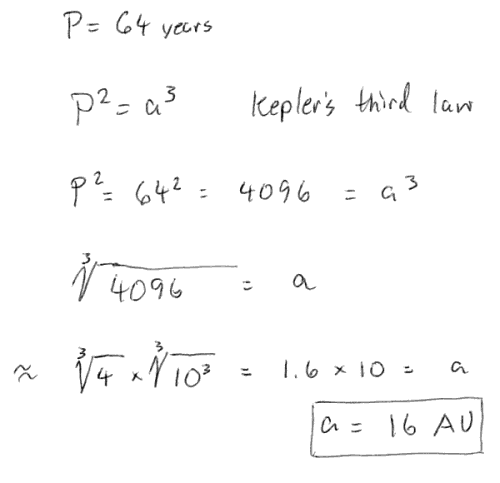 P = 64 years
P² = a³ Kepler's third law
P² = 64² = 4096 = a³
∛4096 = a
≈ ∛4 × ∛10³ = 1.6 × 10 = a
a = 16 AU